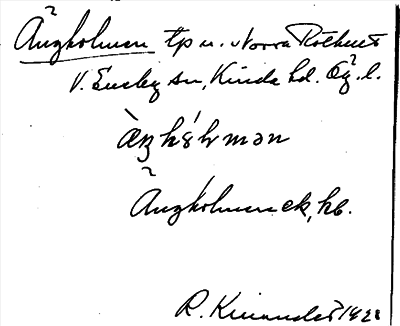 Ängholmen tp u. Norra Rothult
V. Eneby sn, Kinda hd. Ög. l.
Ängholmen ek, hb.
R. Kinander 1928